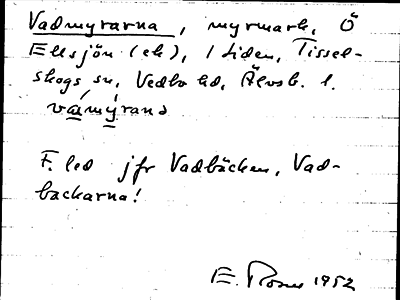 Vadmyrarna, myrmark, Ö
Ellsjön (ek), i Liden, Tissel-
skogs sn, Vedbo hd, Älvsb. l.
vàmýrana
F. led jfr Vadbäcken, Vad-
backarna!
E. Rosen 1952